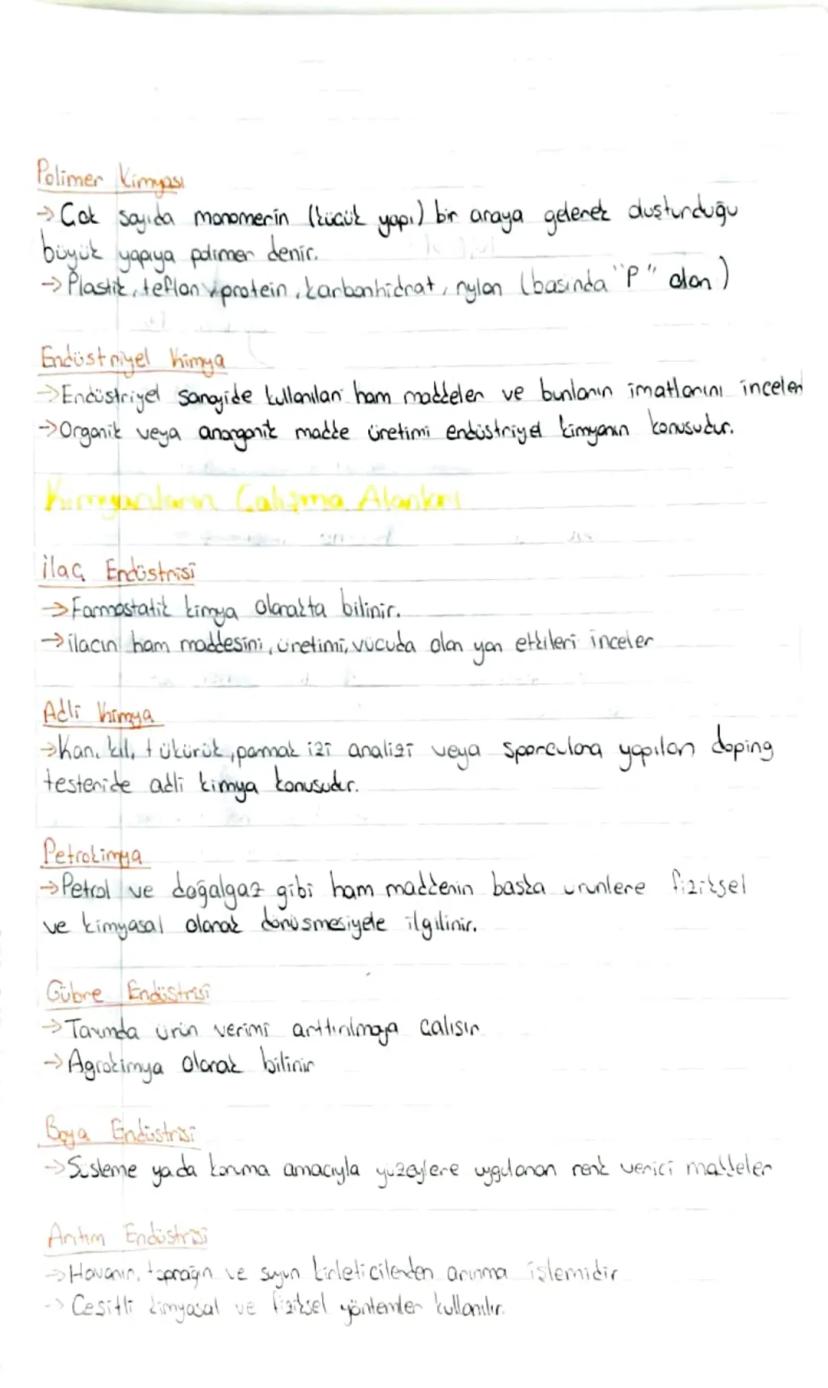 Polimer Kimyası
→ Çok sayıda monomerin (küçük yapı) bir araya gelerek oluşturduğu
büyük yapıya polimer denir.
→ Plastik, teflon, protein, karbonhidrat, nylon (basında "P" olan)
Endüstriyel kimya
→ Endüstriyel sanayide kullanılan ham maddeler ve bunların imatlarını inceler
→ Organik veya anorganik madde üretimi endüstriyel kimyanın konusudur.
Kimyanların Calışma Alanları
ilaç Endüstrisi
→ Farmostatik kimya olarakta bilinir.
→ ilacın ham maddesini, üretimi, vucuda olan yan etkileri inceler
Adli kimya
→ Kan, kıl, tükürük, parmak izi analizi veya sporculara yapılan doping
testeride adli kimya konusudur.
Petrokimya
→ Petrol ve doğalgaz gibi ham maddenin baska urunlere fiziksel
ve kimyasal olarak dönüsmesiyele ilgilinir.
Gübre Endüstrisi
→ Tarımda ürün verimi arttırılmaya calısır
→ Agrokimya olarak bilinir
Boya Endüstrisi
→ Süsleme yada koruma amacıyla yüzeylere uygulanan renk verici maddeler
Arıtım Endüstrisi
→ Havanın, toprağın ve suyun kirleticilerden arınma işlemidir
→ Cesitli kimyasal ve fiziksel yöntemler kullanılır.